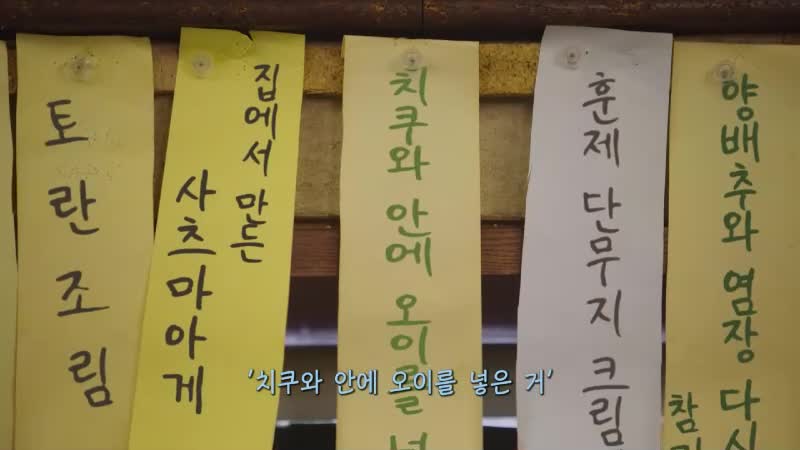 토란조림
집에서 만든
사츠마아게
치쿠와 안에 오이를
훈제 단무지 크림
양배추와 염장 다시
'치쿠와 안에 오이를 넣은 거'